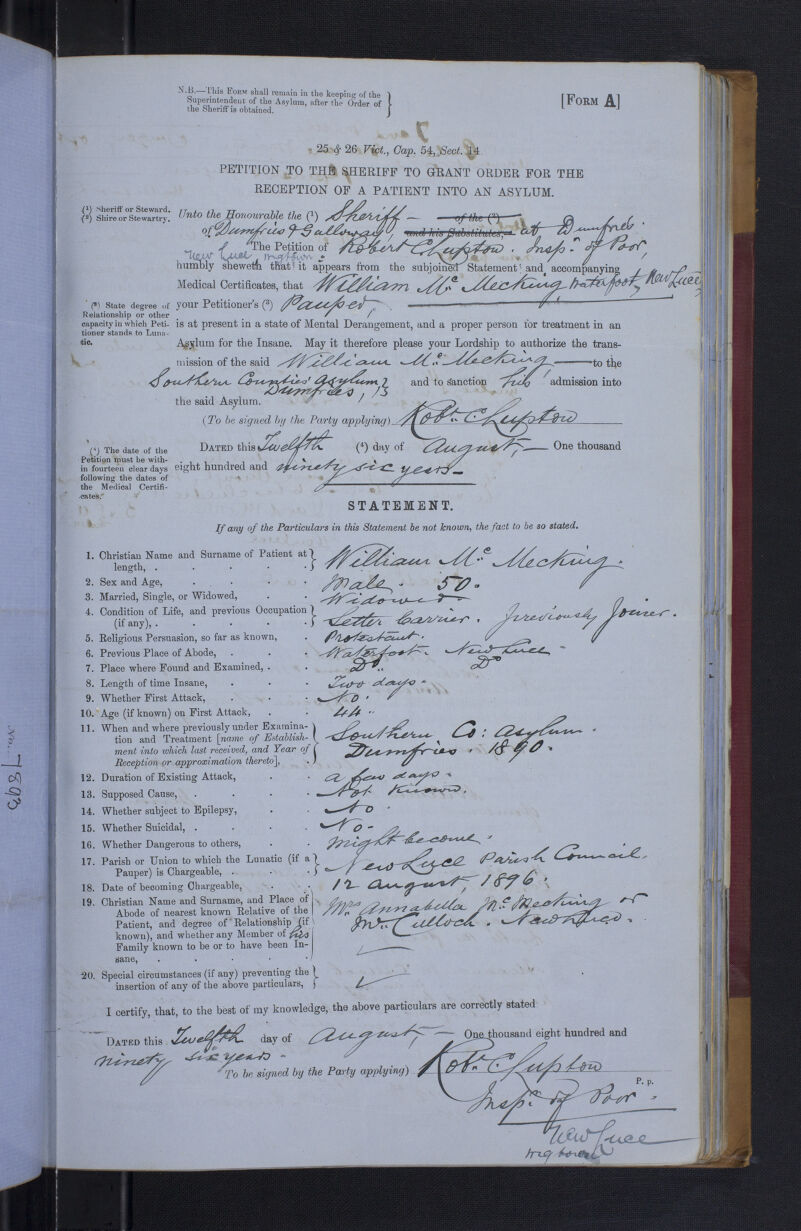 N.B.—This Form shall remain in the keeping of the
Superintendent of the Asylum, after the Order of
the Sheriff is obtained.
[Form A]
25 & 26 Vict., Cap. 54, Sect. 14
PETITION TO THE SHERIFF TO GRANT ORDER FOR THE
RECEPTION OF A PATIENT INTO AN ASYLUM.
(1) Sheriff or Steward.
(2) Shire or Stewartry.
Unto the Honourable the (1) Sheriff — of the (2)
of Dumfries & Galloway, and his Substitutes, at Dumfries.
The Petition of Robert C. Lupton. Inspr. of Poor,
New Luce Wigtown
humbly sheweth that it appears from the subjoined Statement and accompanying
Medical Certificates, that William Mc. Mecking Waterfoot, New Luce,
(3) State degree of
Relationship or other
capacity in which Peti-
tioner stands to Luna-
tic.
your Petitioner's (3) Pauper,
is at present in a state of Mental Derangement, and a proper person for treatment in an
Asylum for the Insane. May it therefore please your Lordship to authorize the trans-
mission of the said William Mc. Mecking — to the
Southern Counties' Asylum, Dumfries, and to sanction his admission into
the said Asylum.
(To be signed by the Party applying) Robt. C. Lupton
(4) The date of the
Petition must be with-
in fourteen clear days
following the dates of
the Medical Certifi-
cates.
Dated this Twelfth (4) day of August, — One thousand
eight hundred and ninety six years—
STATEMENT.
If any of the Particulars in this Statement be not known, the fact to be so stated.
1. Christian Name and Surname of Patient at
length, . William Mc. Mecking.
2. Sex and Age, Male. 50.
3. Married, Single, or Widowed, Widowed
4. Condition of Life, and previous Occupation
(if any), . Letter Carrier. previously Joiner.
5. Religious Persuasion, so far as known, Protestant.
6. Previous Place of Abode, Waterfoot. New Luce
7. Place where Found and Examined, Do. Do
8. Length of time Insane, Two days.
9. Whether First Attack, No.
10. Age (if known) on First Attack, 44.
11. When and where previously under Examina-
tion and Treatment [name of Establish-
ment into which last received, and Year of
Reception or approximation thereto], Southern Co: Asylum.
Dumfries. 1890.
12. Duration of Existing Attack, a few days.
13. Supposed Cause, Not known.
14. Whether subject to Epilepsy, No.
15. Whether Suicidal, No.
16. Whether Dangerous to others, might become.
17. Parish or Union to which the Lunatic (if a
Pauper) is Chargeable, New Luce Parish Council.
18. Date of becoming Chargeable, 12 August, 1896.
19. Christian Name and Surname, and Place of
Abode of nearest known Relative of the
Patient, and degree of Relationship (if
known), and whether any Member of his
Family known to be or to have been In-
sane, Mrs. Annabella Mc. Mecking or
McCulloch. New Luce.
20. Special circumstances (if any) preventing the
insertion of any of the above particulars,
I certify, that, to the best of my knowledge, the above particulars are correctly stated
Dated this Twelfth day of August, — One thousand eight hundred and
ninety six years —
To be signed by the Party applying) Robt. C. Lupton
P. p.
Inspr. of Poor.
New Luce
Wigtown
No. 7893